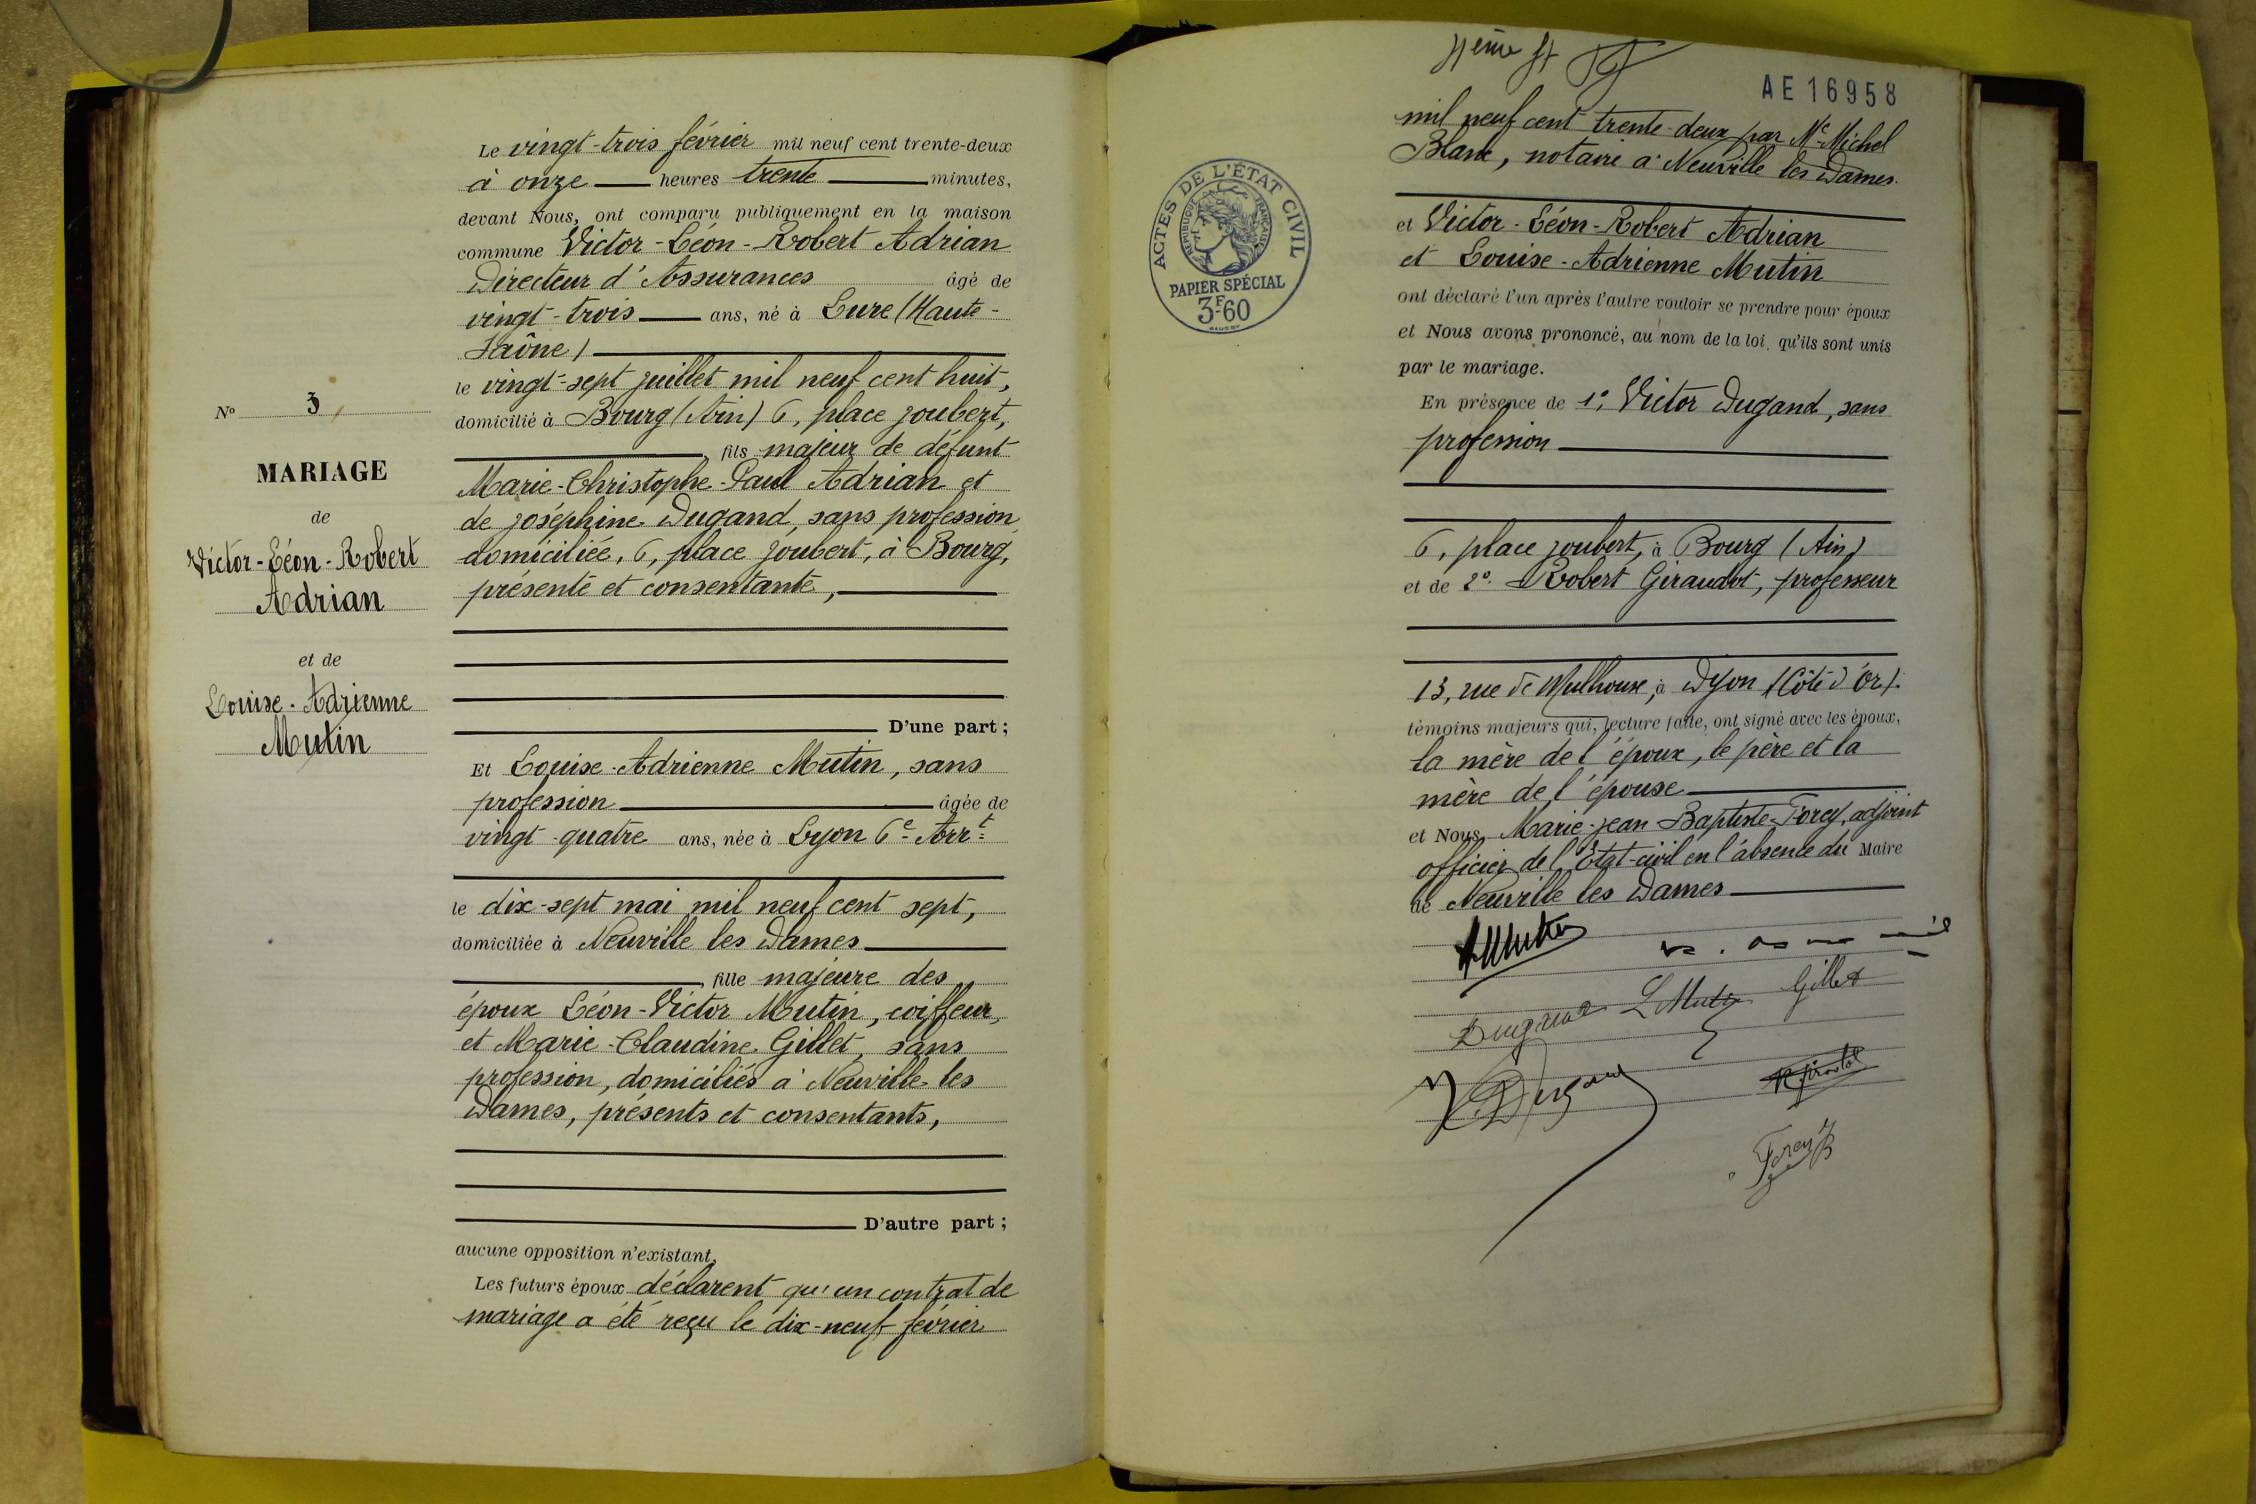 Le vingt-trois février mil neuf cent trente-deux
à onze heures trente minutes,
devant Nous, ont comparu publiquement en la maison
commune Victor-Léon-Robert Adrian
Directeur d'Assurances âgé de
vingt-trois ans, né à Lure (Haute-
Saône)
le vingt-sept juillet mil neuf cent huit,
domicilié à Bourg (Ain) 6, place Joubert,
fils majeur de défunt
Marie-Christophe-Paul Adrian et
de Joséphine Dugand, sans profession
domiciliée, 6, place Joubert, à Bourg,
présente et consentante,
D'une part ;
Et Louise-Adrienne Mutin, sans
profession âgée de
vingt-quatre ans, née à Lyon 6e Arrt
le dix-sept mai mil neuf cent sept,
domiciliée à Neuville les Dames
fille majeure des
époux Léon-Victor Mutin, coiffeur,
et Marie-Claudine Gillet, sans
profession, domiciliés à Neuville-les
Dames, présents et consentants,
D'autre part ;
aucune opposition n'existant,
Les futurs époux déclarent qu'un contrat de
mariage a été reçu le dix-neuf février
No 3
MARIAGE
de
Victor-Léon-Robert
Adrian
et de
Louise-Adrienne
Mutin
AE 16958
mil neuf cent trente-deux par Me Michel
Blanc, notaire à Neuville les Dames.
ACTES DE L'ÉTAT CIVIL
RÉPUBLIQUE FRANÇAISE
PAPIER SPÉCIAL
3F60
et Victor-Léon-Robert Adrian
et Louise-Adrienne Mutin
ont déclaré l'un après l'autre vouloir se prendre pour époux
et Nous avons prononcé, au nom de la loi, qu'ils sont unis
par le mariage.
En présence de 1°. Victor Dugand, sans
profession
6, place Joubert, à Bourg (Ain)
et de 2°. Robert Giraudot, professeur
13, rue de Mulhouse, à Dijon (Côte d'Or).
témoins majeurs qui, lecture faite, ont signé avec les époux,
la mère de l'époux, le père et la
mère de l'épouse
et Nous, Marie-Jean Baptiste-Forey, adjoint
officier de l'Etat-civil en l'absence du Maire
de Neuville les Dames
Mutin
L Mutin Gillet